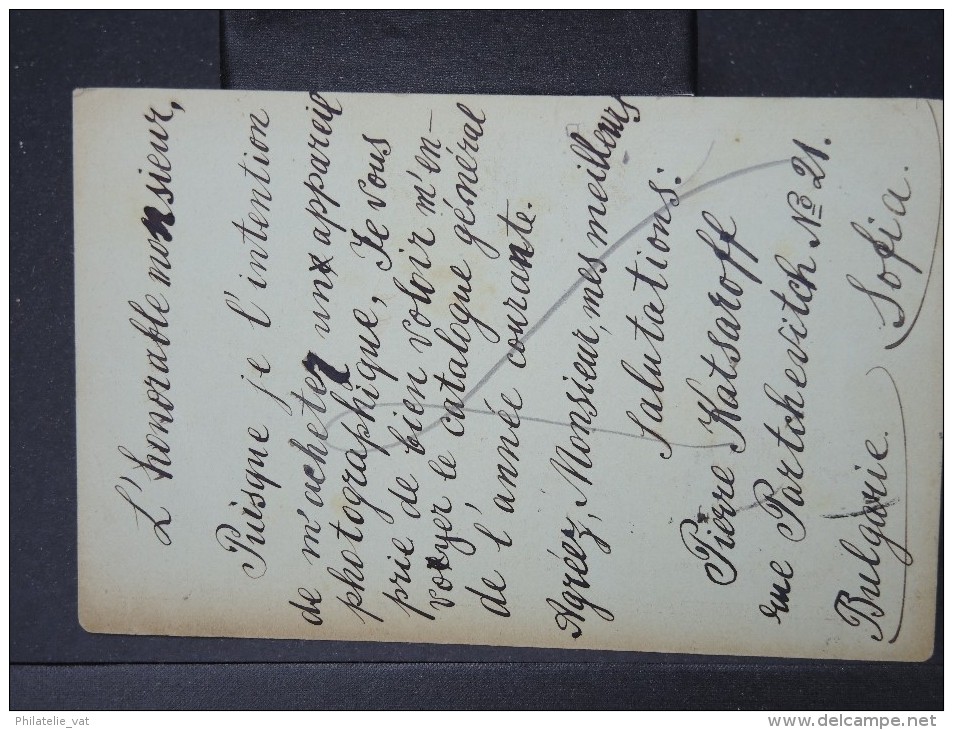 L'honorable monsieur,
Puisque je l'intention
de m'achetez un appareil
photographique, Je vous
prie de bien voloir m'en-
voyer le catalogue général
de l'année courante.
Agréez, Monsieur, mes meilleurs
Salutations:
Pierre Katsaroff
rue Partchevitch No 21.
Bulgarie. Sofia.
Philatelie_vat
www.delcampe.net